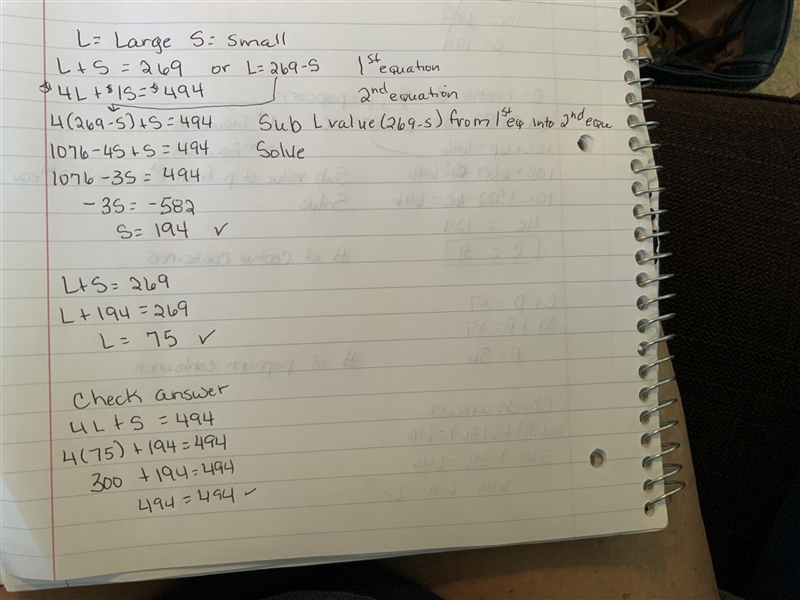 L = Large S = Small
L + S = 269 or L = 269 - S 1st equation
$4L + $1S = $494 2nd equation
4(269-S) + S = 494 Sub L value (269-S) from 1st eq into 2nd equ
1076 - 4S + S = 494 Solve
1076 - 3S = 494
-3S = -582
S = 194 ✓
L + S = 269
L + 194 = 269
L = 75 ✓
Check answer
4L + S = 494
4(75) + 194 = 494
300 + 194 = 494
494 = 494 ✓